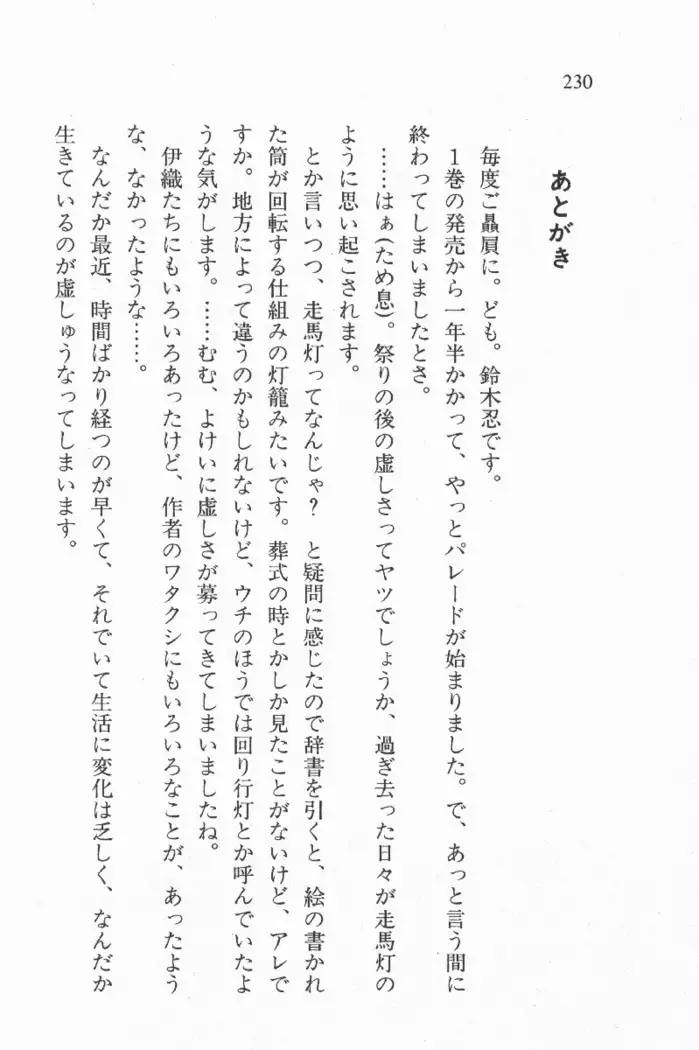 230
あとがき
毎度ご贔屓に。ども。鈴木忍です。
１巻の発売から一年半かかって、やっとパレードが始まりました。で、あっと言う間に
終わってしまいましたとさ。
……はぁ(ため息)。祭りの後の虚しさってヤツでしょうか、過ぎ去った日々が走馬灯の
ように思い起こされます。
とか言いつつ、走馬灯ってなんじゃ？　と疑問に感じたので辞書を引くと、絵の書かれ
た筒が回転する仕組みの灯籠みたいです。葬式の時とかしか見たことがないけど、アレで
すか。地方によって違うのかもしれないけど、ウチのほうでは回り行灯とか呼んでいたよ
うな気がします。……むむ、よけいに虚しさが募ってきてしまいましたね。
伊織たちにもいろいろあったけど、作者のワタクシにもいろいろなことが、あったよう
な、なかったような……。
なんだか最近、時間ばかり経つのが早くて、それでいて生活に変化は乏しく、なんだか
生きているのが虚しゅうなってしまいます。